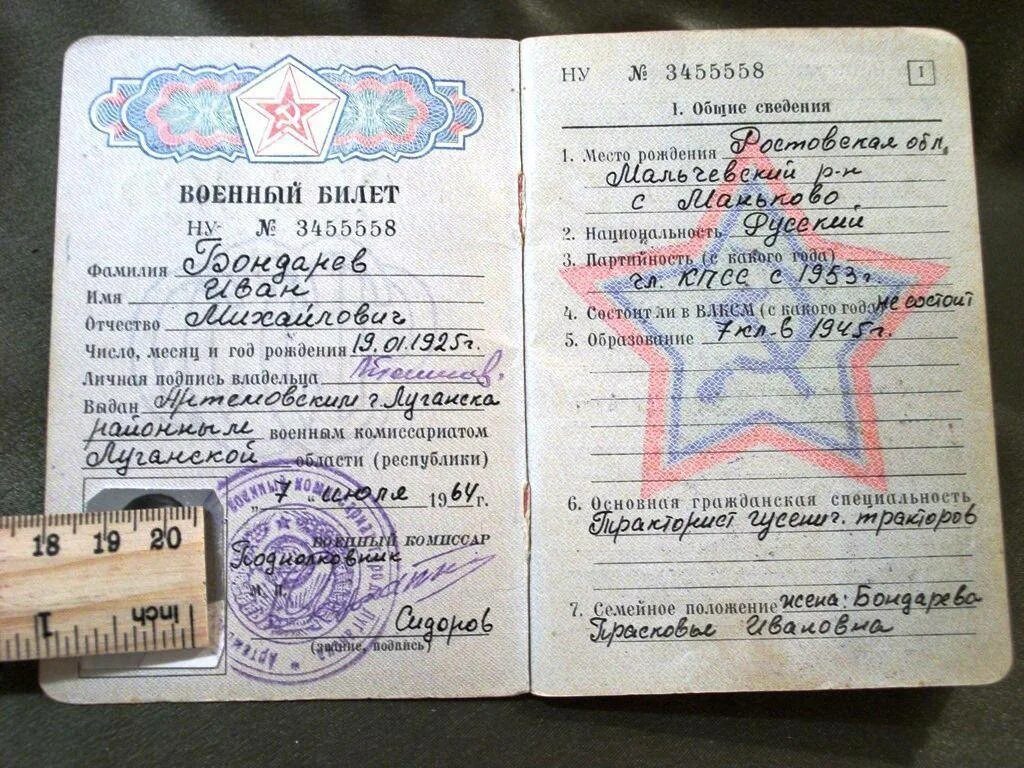 ВОЕННЫЙ БИЛЕТ
НУ № 3455558
Фамилия Бондарев
Имя Иван
Отчество Михайлович
Число, месяц и год рождения 19.01.1925г.
Личная подпись владельца
Выдан Артемовским г. Луганска
районным военным комиссариатом
Луганской области (республики)
"7" июля 1964 г.
ВОЕННЫЙ КОМИССАР
Подполковник
М. П.
Сидоров
(звание, подпись)
18 19 20
1 inch
НУ № 3455558
1
I. Общие сведения
1. Место рождения Ростовская обл,
Мальчевский р-н
с Маньково
2. Национальность Русский
3. Партийность (с какого года)
чл. КПСС с 1953г.
4. Состоит ли в ВЛКСМ (с какого года) не состоит
5. Образование 7 кл. в 1945г.
6. Основная гражданская специальность
Тракторист гусенич. тракторов
7. Семейное положение жена: Бондарева
Прасковье Ивановна